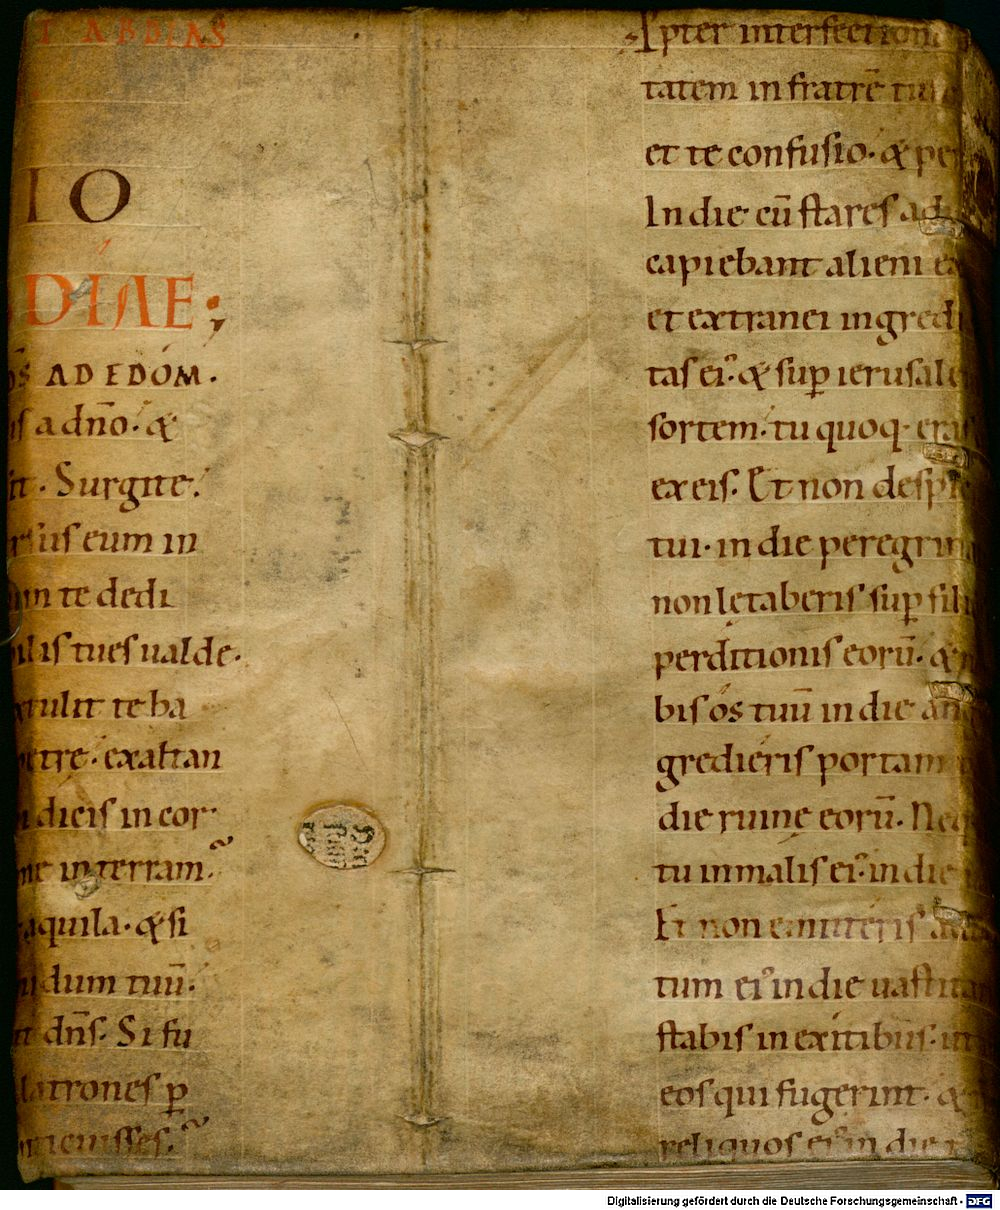 T ABDIAS
IO
DIAE;
AD EDOM.
a dño. &
Surgite.
eum in
in te dedi
tu es ualde.
tulit te ba
exaltan
dicis in cor
in terram
aquila. & si
dum tuū.
dñs. Si fu
latrones ꝑ
ticuisses.
Ipter interfection
tatem in fratrē tuū
et te confusio. & pe
In die cū stares ad
capiebant alieni ex
et extranei ingred
tas eiꝰ. & suꝑ ierusale
sortem. tu quoq· eras
ex eis. Et non despi
tui. in die peregrin
non lętaberis suꝑ fili
perditionis eorū. & n
bis os tuū in die an
gredieris portam
die ruine eorū. Ne
tu in malis eiꝰ. in die
Et non emitteris
tum eiꝰ in die uastita
stabis in exitibus. ut
eos qui fugerint. &
reliquos eiꝰ in die
Digitalisierung gefördert durch die Deutsche Forschungsgemeinschaft - DFG